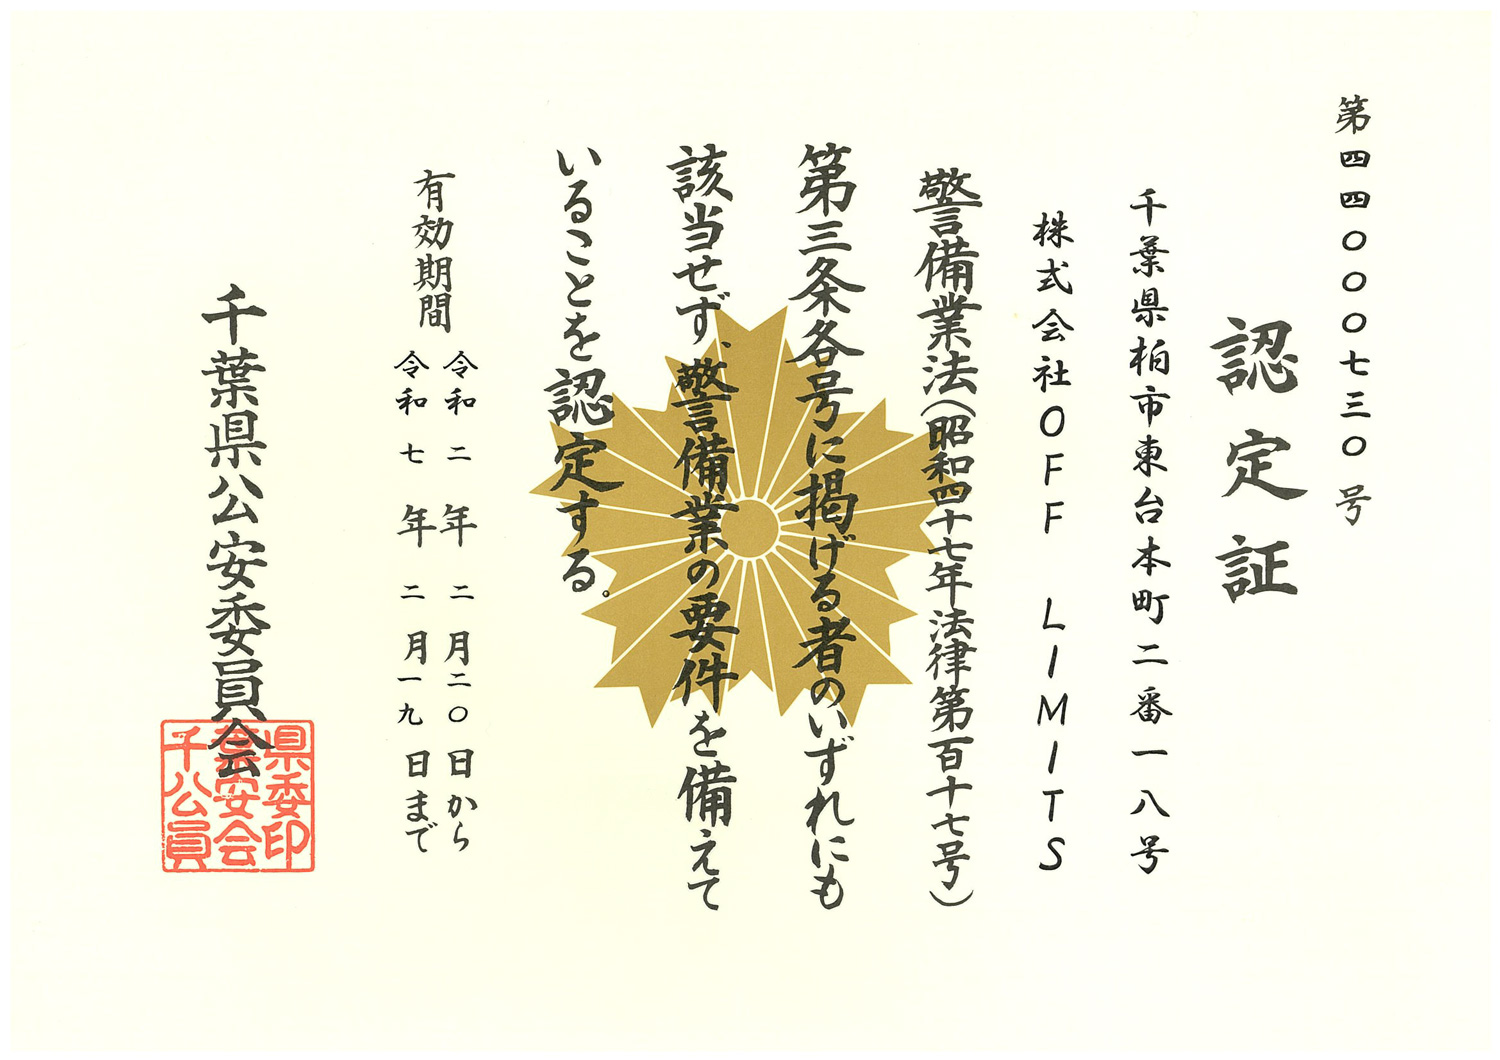 第四四〇〇〇七三〇号
認定証
千葉県柏市東台本町二番一八号
株式会社OFF LIMITS
警備業法（昭和四十七年法律第百十七号）
第三条各号に掲げる者のいずれにも
該当せず、警備業の要件を備えて
いることを認定する。
有効期間
令和二年二月二〇日から
令和七年二月一九日まで
千葉県公安委員会
県委印
葉安会
千公員